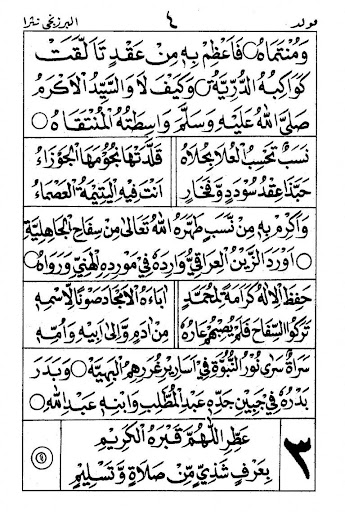 مولد ٤ البرزنجي نثرا
وَمُنْتَمَاهُ ۞ فَاَعْظِمْ بِهِ مِنْ عِقْدٍ تَاَلَّقَتْ
كَوَاكِبُهُ الدُّرِّيَّةُ ۞ وَكَيْفَ لَا وَالسَّيِّدُ الْاَكْرَمُ
صَلَّى اللهُ عَلَيْهِ وَسَلَّمَ وَاسِطَتُهُ الْمُنْتَقَاهُ ۞
نَسَبٌ تَحْسِبُ الْعُلَا بِحُلَاهُ قَلَّدَتْهَا نُجُوْمَهَا الْجَوْزَاءُ
حَبَّذَا عِقْدُ سُوْدَدٍ وَفَخَارٍ اَنْتَ فِيْهِ الْيَتِيْمَةُ الْعَصْمَاءُ
وَاَكْرِمْ بِهِ مِنْ نَسَبٍ طَهَّرَهُ اللهُ تَعَالَى مِنْ سِفَاحِ الْجَاهِلِيَّةِ
۞ اَوْرَدَ الزَّيْنُ الْعِرَاقِيُّ وَارِدَهُ فِيْ مَوْرِدِهِ الْهَنِيِّ وَرَوَاهُ ۞
حَفِظَ الْاِلٰهُ كَرَامَةً لِمُحَمَّدٍ اٰبَاءَهُ الْاَمْجَادَ صَوْنًا لِاسْمِهِ
تَرَكُوا السِّفَاحَ فَلَمْ يُصِبْهُمْ عَارُهُ مِنْ اٰدَمٍ وَاِلَى اَبِيْهِ وَاُمِّهِ
سَرَاةٌ سَرٰى نُوْرُ النُّبُوَّةِ فِيْ اَسَارِيْرِ غُرَرِهِمُ الْبَهِيَّةِ ۞ وَبَدَرَ
بَدْرُهُ فِيْ جَبِيْنِ جَدِّهِ عَبْدِ الْمُطَّلِبِ وَابْنِهِ عَبْدِ اللهِ ۞
عَطِّرِ اللّٰهُمَّ قَبْرَهُ الْكَرِيْمَ
٣ بِعَرْفٍ شَذِيٍّ مِنْ صَلَاةٍ وَتَسْلِيْمٍ